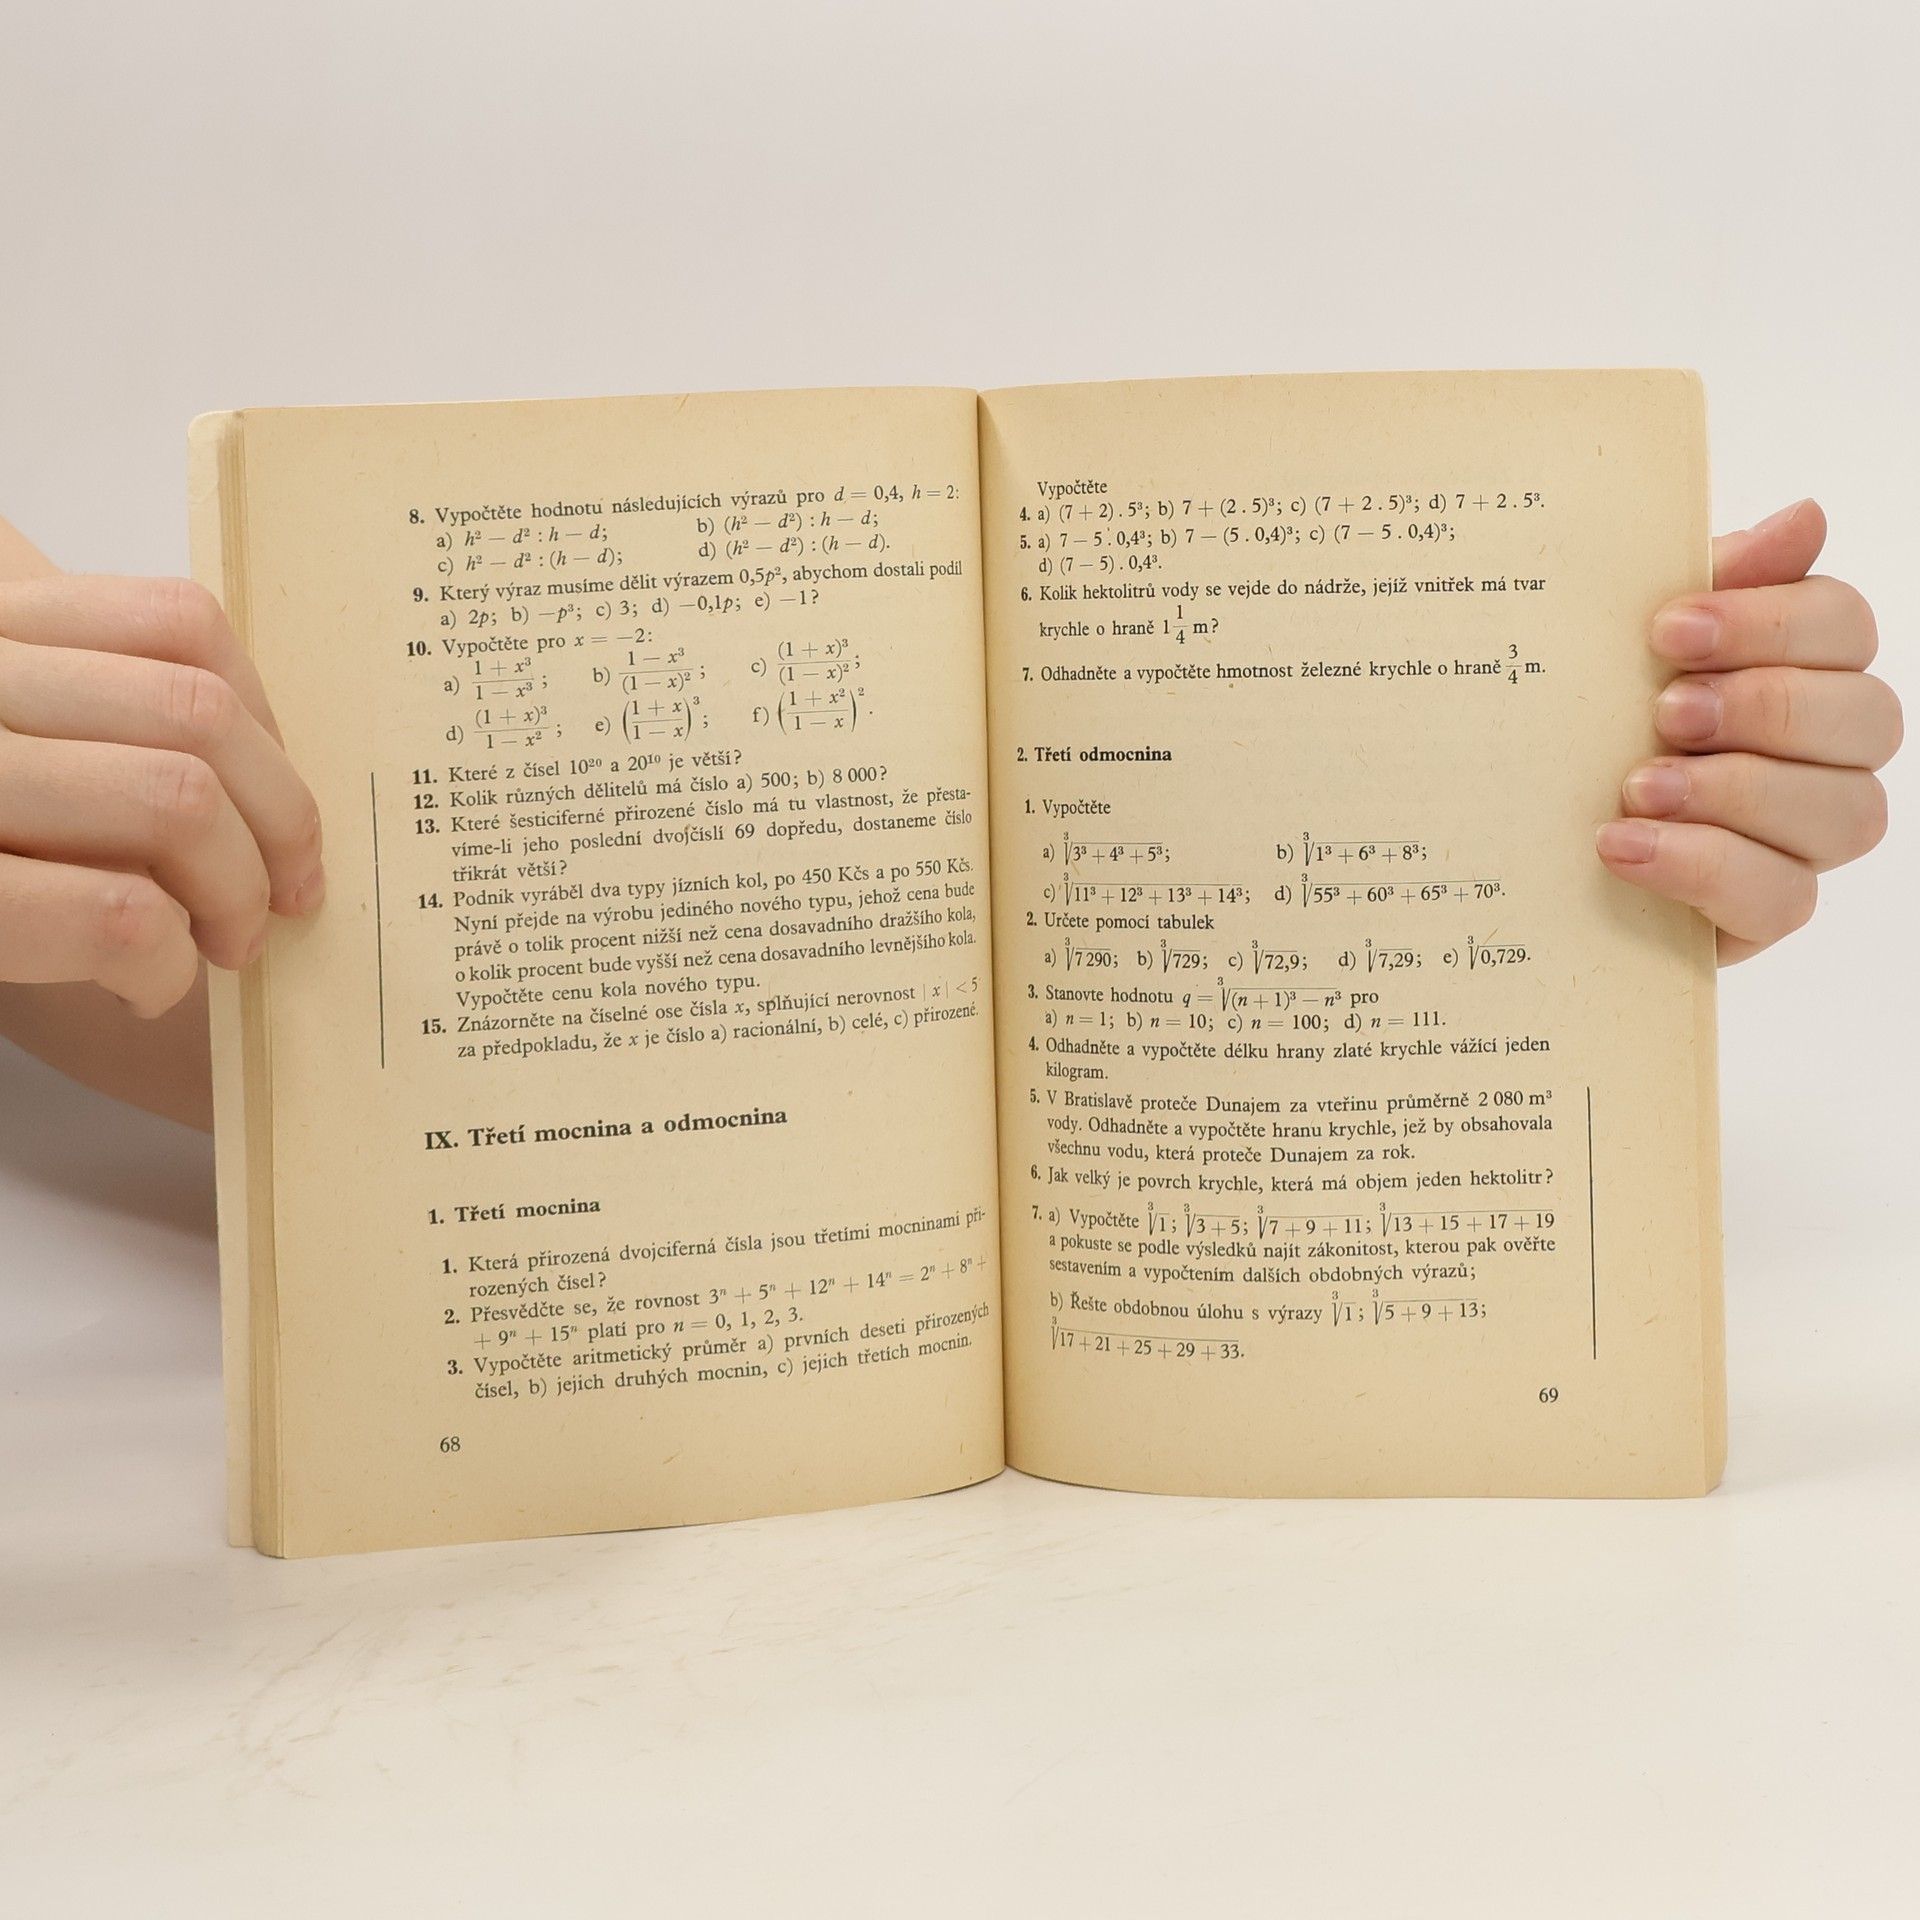 8. Vypočtěte hodnotu následujících výrazů pro d = 0,4, h = 2:
a) h² — d² : h — d; b) (h² — d²) : h — d;
c) h² — d² : (h — d); d) (h² — d²) : (h — d).
9. Který výraz musíme dělit výrazem 0,5p², abychom dostali podíl
a) 2p; b) —p³; c) 3; d) —0,1p; e) —1?
10. Vypočtěte pro x = —2:
a) (1 + x³)/(1 — x³); b) (1 — x³)/(1 — x)²; c) (1 + x)³/(1 — x)²;
d) (1 + x)³/(1 — x²); e) ((1 + x)/(1 — x))³; f) ((1 + x²)/(1 — x))².
11. Které z čísel 10²⁰ a 20¹⁰ je větší?
12. Kolik různých dělitelů má číslo a) 500; b) 8 000?
13. Které šesticiferné přirozené číslo má tu vlastnost, že přesta-
víme-li jeho poslední dvojčíslí 69 dopředu, dostaneme číslo
třikrát větší?
14. Podnik vyráběl dva typy jízních kol, po 450 Kčs a po 550 Kčs.
Nyní přejde na výrobu jediného nového typu, jehož cena bude
právě o tolik procent nižší než cena dosavadního dražšího kola,
o kolik procent bude vyšší než cena dosavadního levnějšího kola.
Vypočtěte cenu kola nového typu.
15. Znázorněte na číselné ose čísla x, splňující nerovnost | x | < 5
za předpokladu, že x je číslo a) racionální, b) celé, c) přirozené.
IX. Třetí mocnina a odmocnina
1. Třetí mocnina
1. Která přirozená dvojciferná čísla jsou třetími mocninami při-
rozených čísel?
2. Přesvědčte se, že rovnost 3ⁿ + 5ⁿ + 12ⁿ + 14ⁿ = 2ⁿ + 8ⁿ +
+ 9ⁿ + 15ⁿ platí pro n = 0, 1, 2, 3.
3. Vypočtěte aritmetický průměr a) prvních deseti přirozených
čísel, b) jejich druhých mocnin, c) jejich třetích mocnin.
68
Vypočtěte
4. a) (7 + 2) . 5³; b) 7 + (2 . 5)³; c) (7 + 2 . 5)³; d) 7 + 2 . 5³.
5. a) 7 — 5 . 0,4³; b) 7 — (5 . 0,4)³; c) (7 — 5 . 0,4)³;
d) (7 — 5) . 0,4³.
6. Kolik hektolitrů vody se vejde do nádrže, jejíž vnitřek má tvar
krychle o hraně 1 1/4 m?
7. Odhadněte a vypočtěte hmotnost železné krychle o hraně 3/4 m.
2. Třetí odmocnina
1. Vypočtěte
a) ∛(3³ + 4³ + 5³); b) ∛(1³ + 6³ + 8³);
c) ∛(11³ + 12³ + 13³ + 14³); d) ∛(55³ + 60³ + 65³ + 70³).
2. Určete pomocí tabulek
a) ∛7 290; b) ∛729; c) ∛72,9; d) ∛7,29; e) ∛0,729.
3. Stanovte hodnotu q = ∛((n + 1)³ — n³) pro
a) n = 1; b) n = 10; c) n = 100; d) n = 111.
4. Odhadněte a vypočtěte délku hrany zlaté krychle vážící jeden
kilogram.
5. V Bratislavě proteče Dunajem za vteřinu průměrně 2 080 m³
vody. Odhadněte a vypočtěte hranu krychle, jež by obsahovala
všechnu vodu, která proteče Dunajem za rok.
6. Jak velký je povrch krychle, která má objem jeden hektolitr?
7. a) Vypočtěte ∛1; ∛(3 + 5); ∛(7 + 9 + 11); ∛(13 + 15 + 17 + 19)
a pokuste se podle výsledků najít zákonitost, kterou pak ověřte
sestavením a vypočtením dalších obdobných výrazů;
b) Řešte obdobnou úlohu s výrazy ∛1; ∛(5 + 9 + 13);
∛(17 + 21 + 25 + 29 + 33).
69